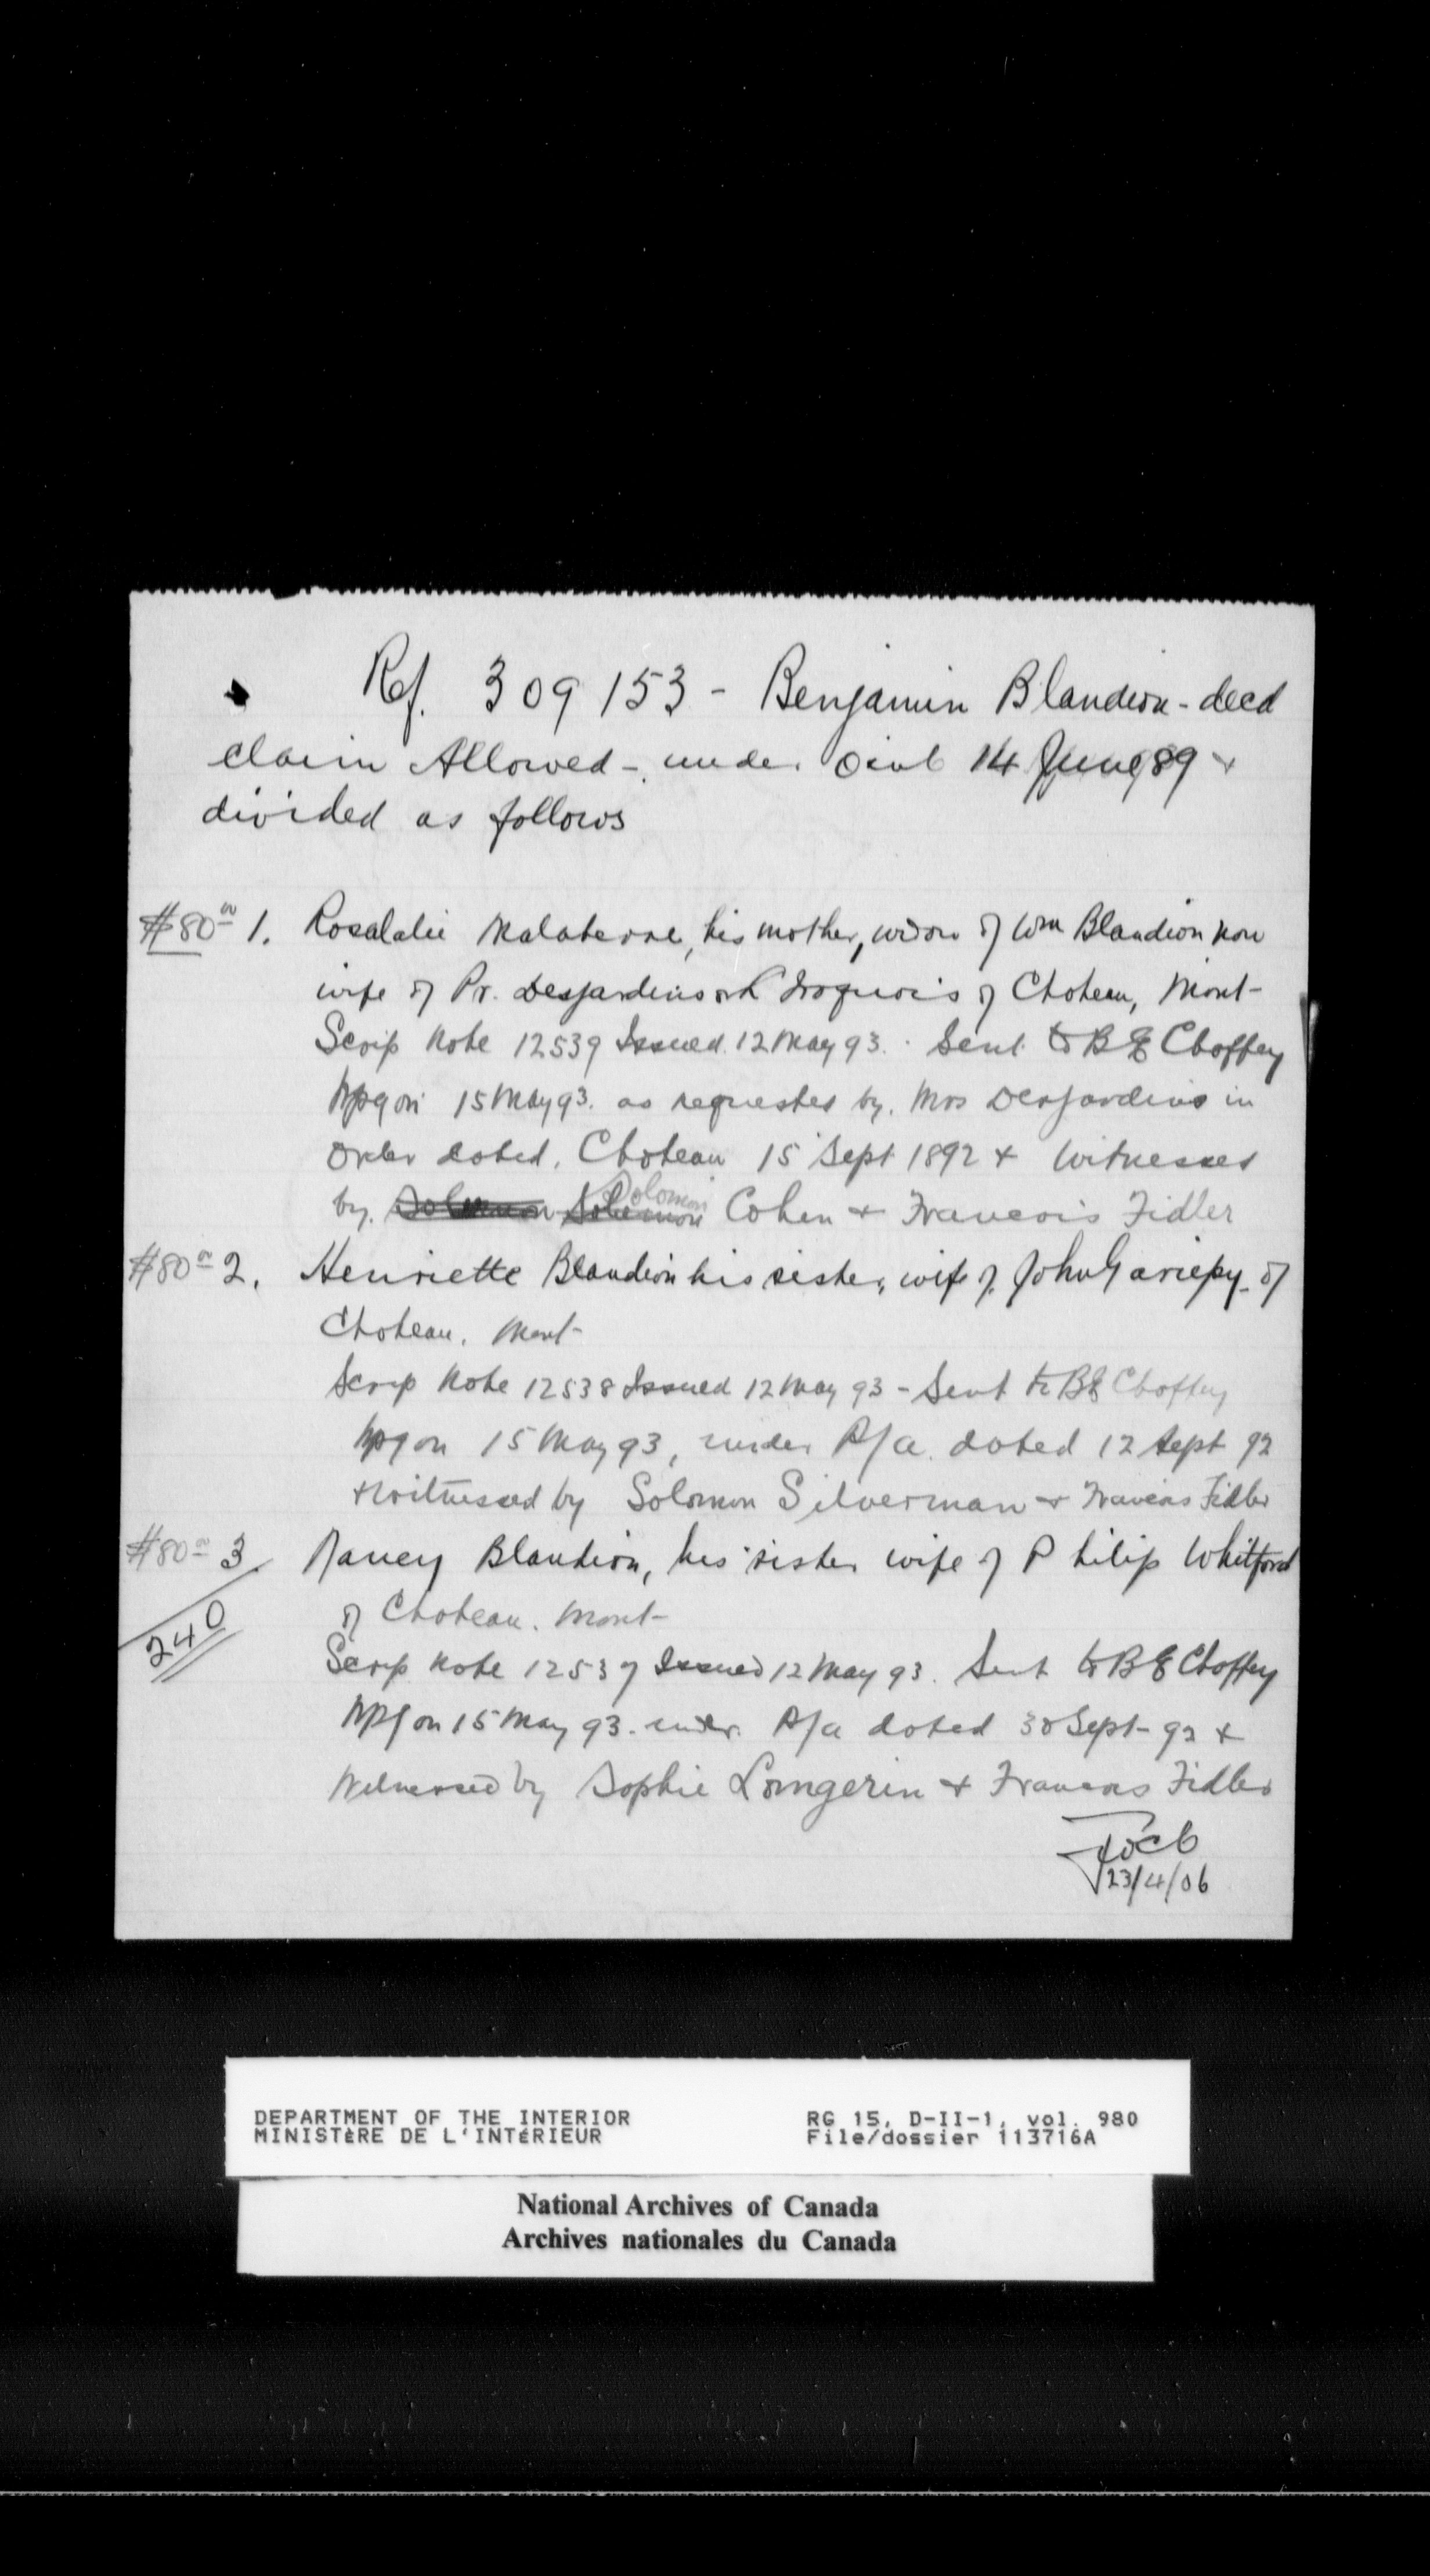 Ref. 309153 - Benjamin Blandion - decd
claim Allowed - under 14 June 89 +
divided as follows
#80 00 1. Rosalalie Malaterre, his mother, widow of Wm Blandion now
wife of Pr. Desjardins Iroquois of Choteau, Mont-
Scrip Note 12539 Issued 12 May 93. Sent to B E Choffey
Wpg on 15 May 93. as requested by Mrs Desjardins in
Order dated, Choteau 15 Sept 1892 + Witnesses
by. Solomon Solomon Solomon Cohen + Francois Fidler
#80 00 2. Henriette Blandion his sister, wife of John Gariepy - of
Choteau. Mont-
Scrip Note 12538 Issued 12 May 93 - Sent to B E Choffey
Wpg on 15 May 93, under P/a. dated 12 Sept 92
+ witnessed by Solomon Silverman + Francois Fidler
#80 00 3. Nancy Blandion, his sister wife of Philip Whitford
240
of Choteau. Mont-
Scrip Note 12537 Issued 12 May 93. Sent to B E Choffey
Wpg on 15 May 93. under P/a dated 30 Sept- 92 +
Witnessed by Sophie Longerin + Francois Fidler
23/4/06
DEPARTMENT OF THE INTERIOR
MINISTÈRE DE L'INTÉRIEUR
RG 15, D-II-1, vol. 980
File/dossier 113716A
National Archives of Canada
Archives nationales du Canada